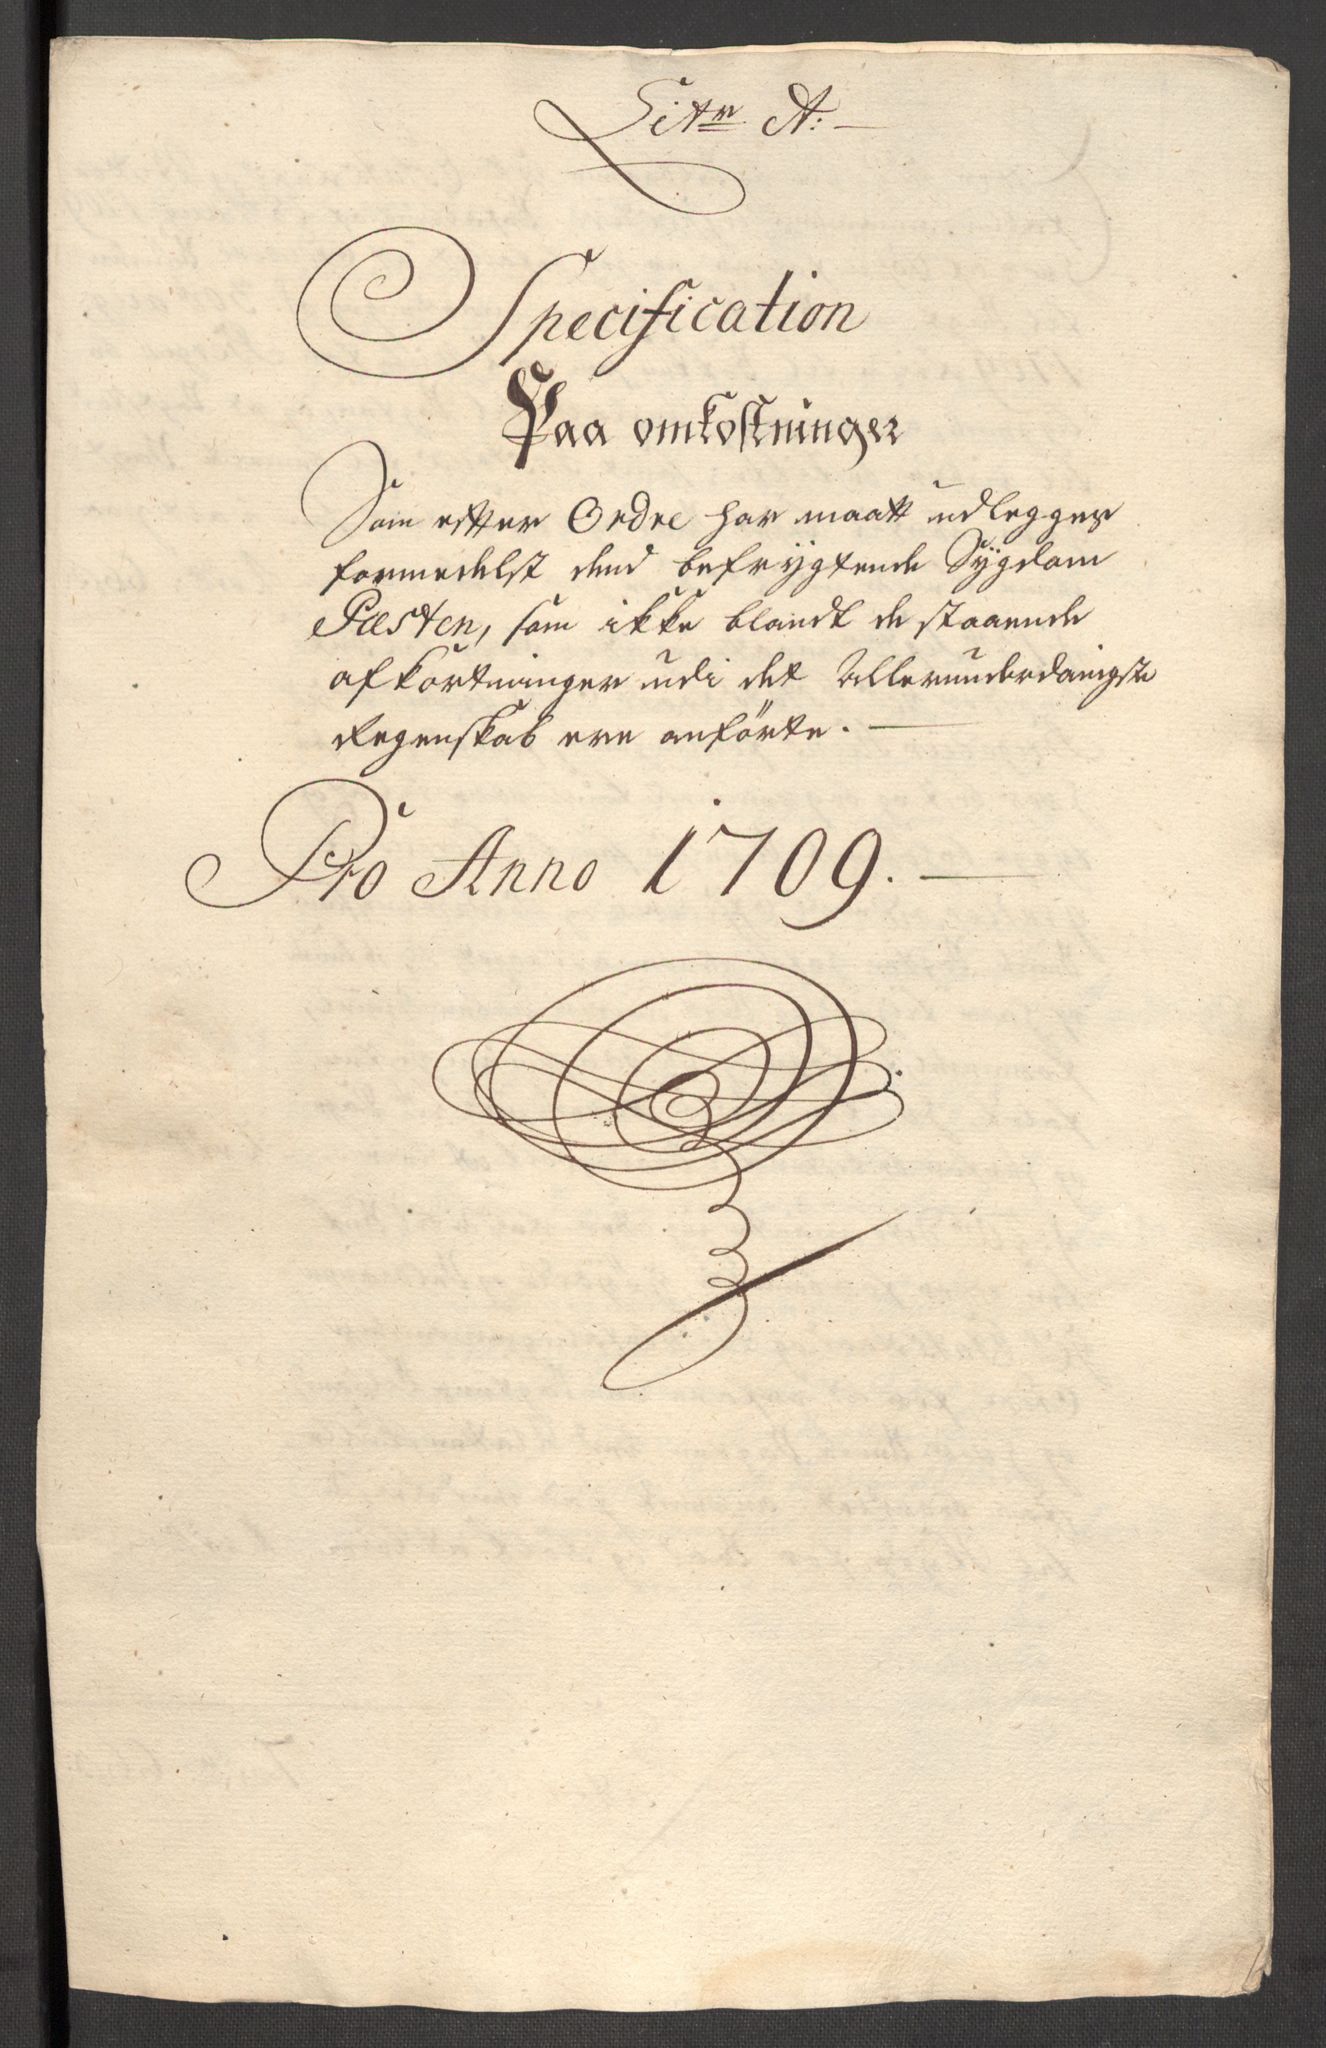 Litr A:
Specification
Paa omkostninger
Som efter Ordre har maatt udlegges
formedelst dend befrygtende Sygdom
Pæsten, som ikke blandt de staaende
afkortninger udi det Allerunderdanigste
Regenskab ere anförte.
Pro Anno 1709.